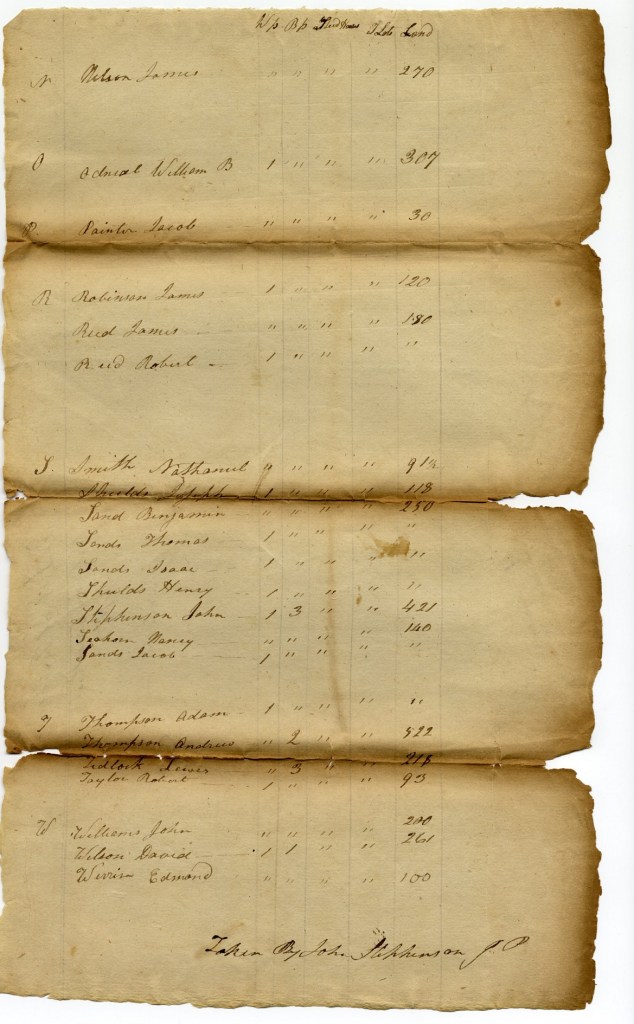 Wp Bp Studhorses T Lots Land
N Nelson James " " " " 270
O Odneal William B 1 " " " 307
P Painter Jacob " " " " 30
R Robinson James 1 " " " 120
Reed James " " " " 180
Reed Robert 1 " " " "
S. Smith Nathaniel " " "
Shields Joseph 1 " " " 118
Sand Benjamin " " " " 250
Sands Thomas 1 " " " "
Sands Isaac 1 " " " "
Shields Henry 1 " " " "
Stephenson John 1 3 " " 421
Seahorn Nancy " " " " 140
Sands Jacob 1 " " " "
T Thompson Adam 1 " " " "
Thompson Andrew " 2 " " 522
Tedlock Lewis " 3 " " 218
Taylor Robert 1 " " " 93
W Williams John " " " " 200
Wilson David 1 1 " " 261
Edmond " " " " 100
Taken By John Stephenson J P